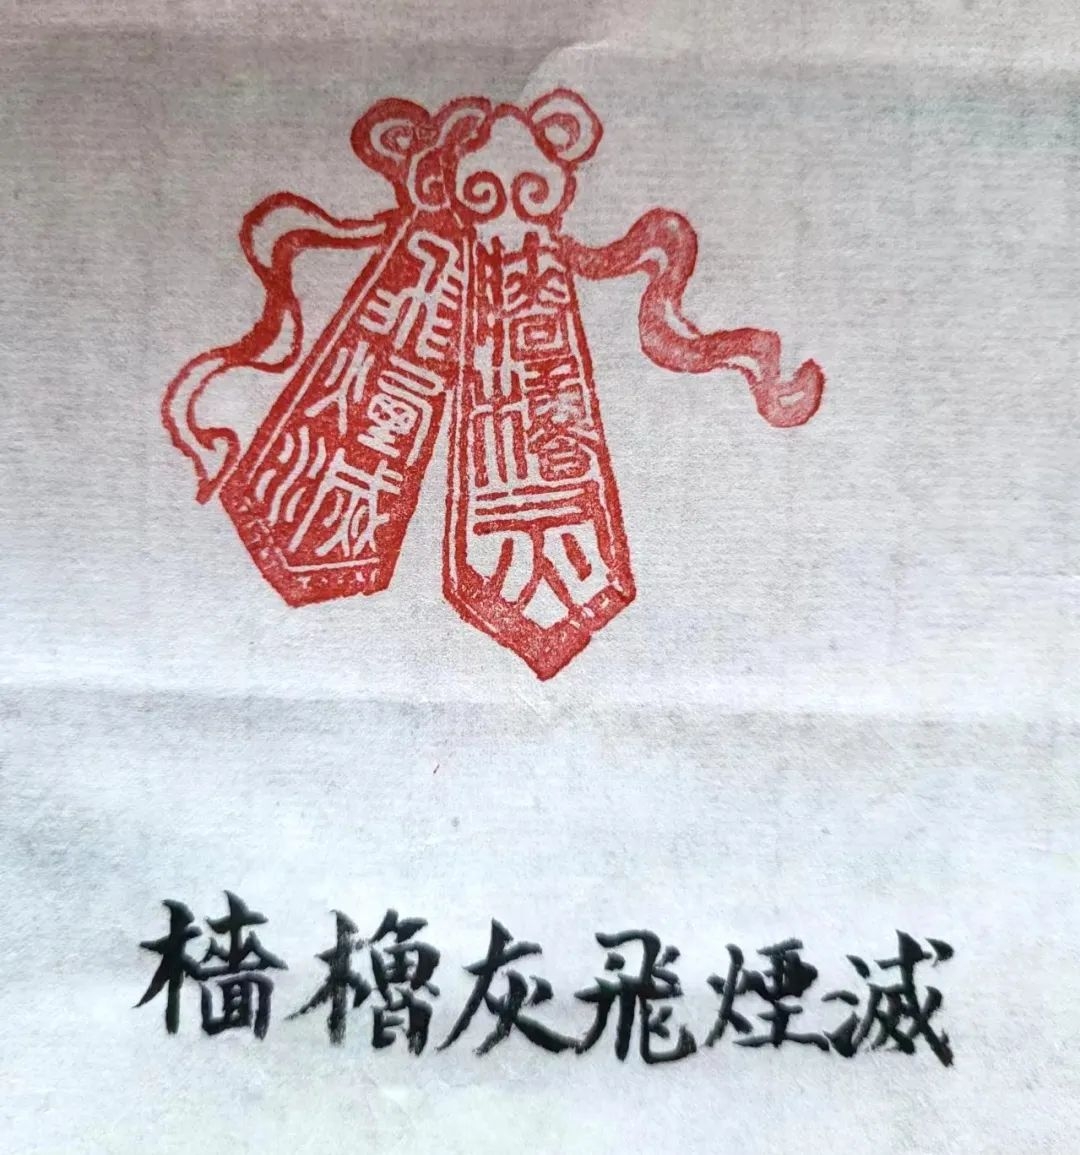 檣櫓灰
飛煙滅
檣櫓灰飛煙滅